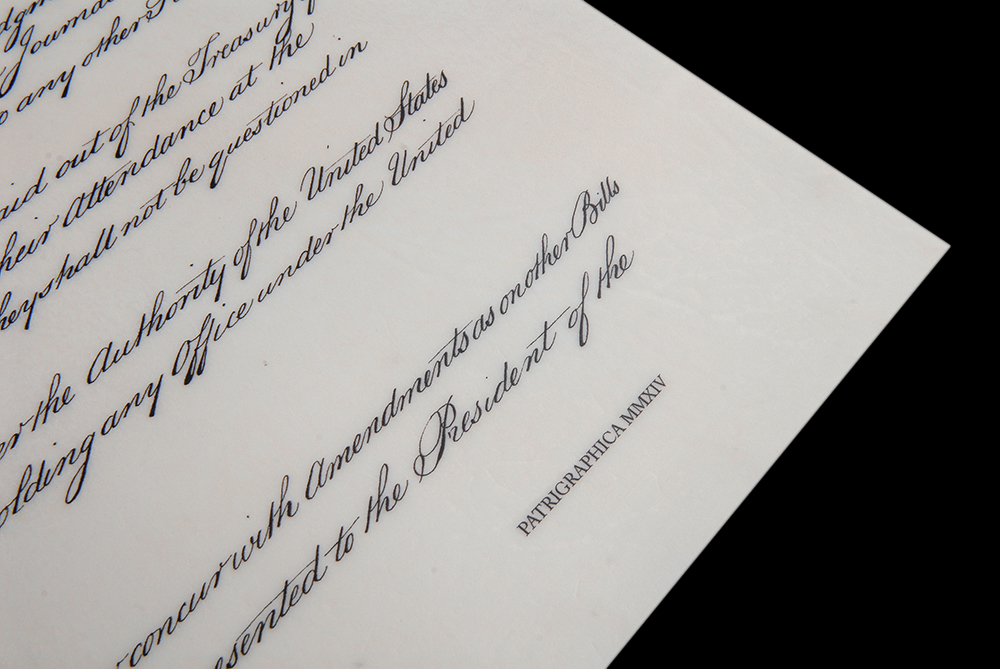 Journal
any other
out of the Treasury of
their Attendance at the
they shall not be questioned in
the Authority of the United States
any Office under the United
concur with Amendments as on other Bills
to the President of the
PATRIGRAPHICA MMXIV